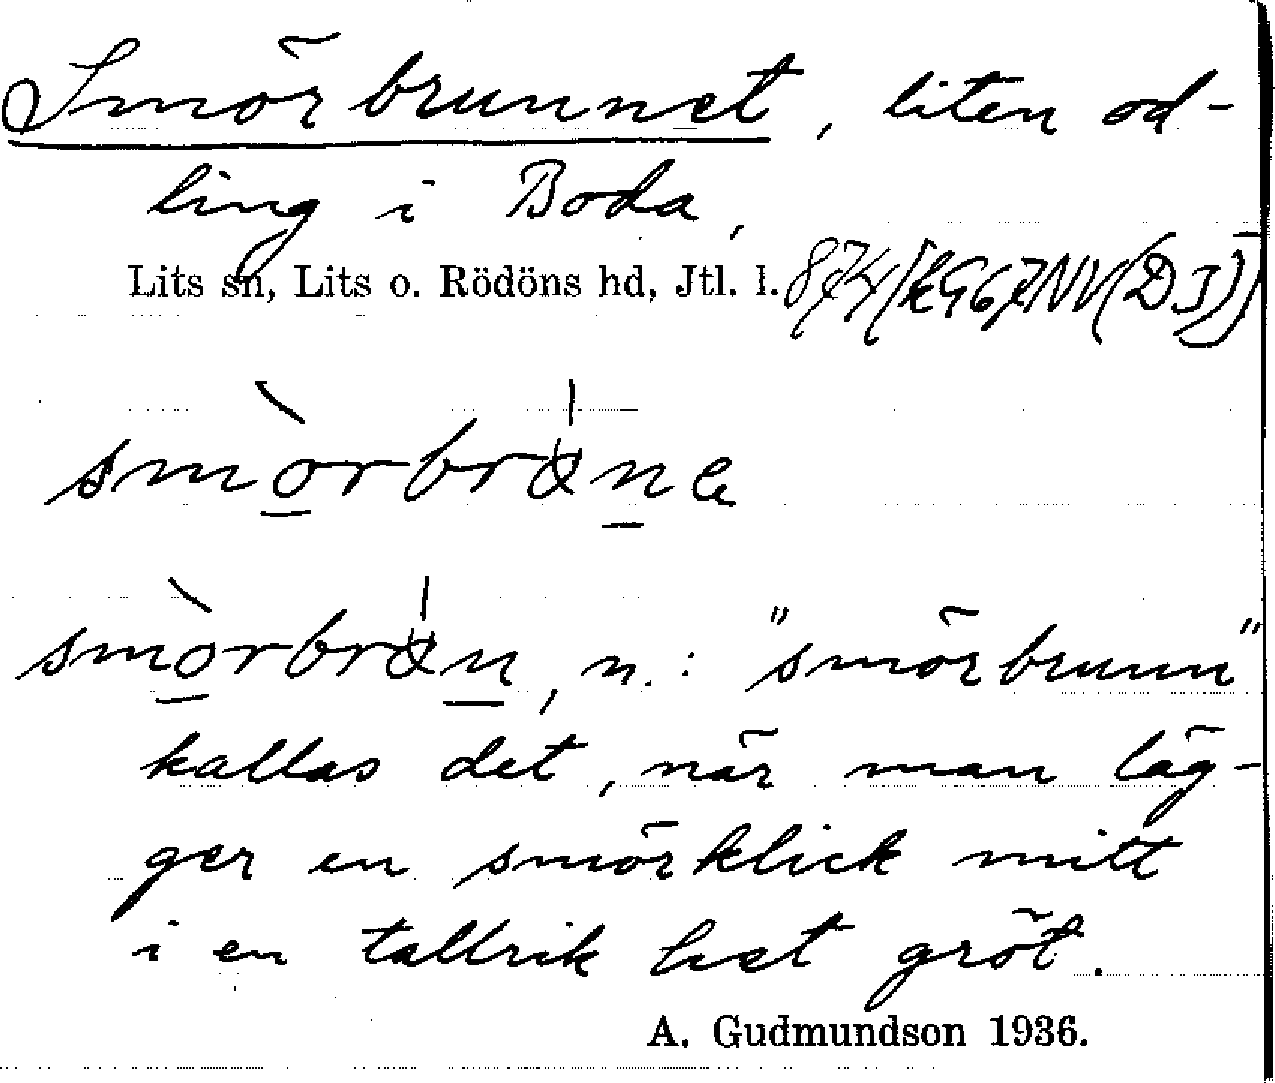 Smörbrunnet, liten od-
ling i Boda,
Lits sn, Lits o. Rödöns hd, Jtl. l.
smòrbräne
smòrbrän, n.: "smörbrunn"
kallas det, när man läg-
ger en smörklick mitt
i en tallrik het gröt.
A. Gudmundson 1936.